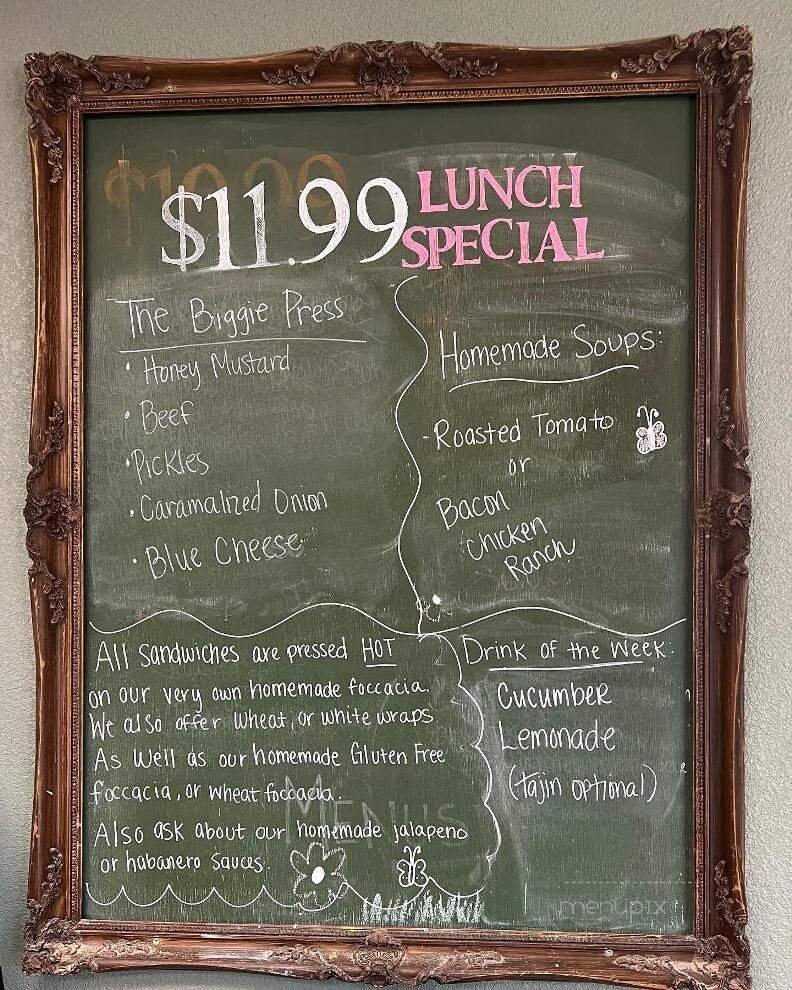 $10.99
$11.99 LUNCH
SPECIAL
The Biggie Press
• Honey Mustard
• Beef
• Pickles
• Caramalized Onion
• Blue Cheese
Homemade Soups:
- Roasted Tomato
or
Bacon
Chicken
Ranch
All Sandwiches are pressed HOT
on our very own homemade foccacia.
We also offer wheat, or white wraps.
As Well as our homemade Gluten Free
foccacia, or wheat foccacia.
MENUS
Also ask about our homemade jalapeno
or habanero sauces.
Drink of the Week:
Cucumber
Lemonade
(tajin optional)
menupix